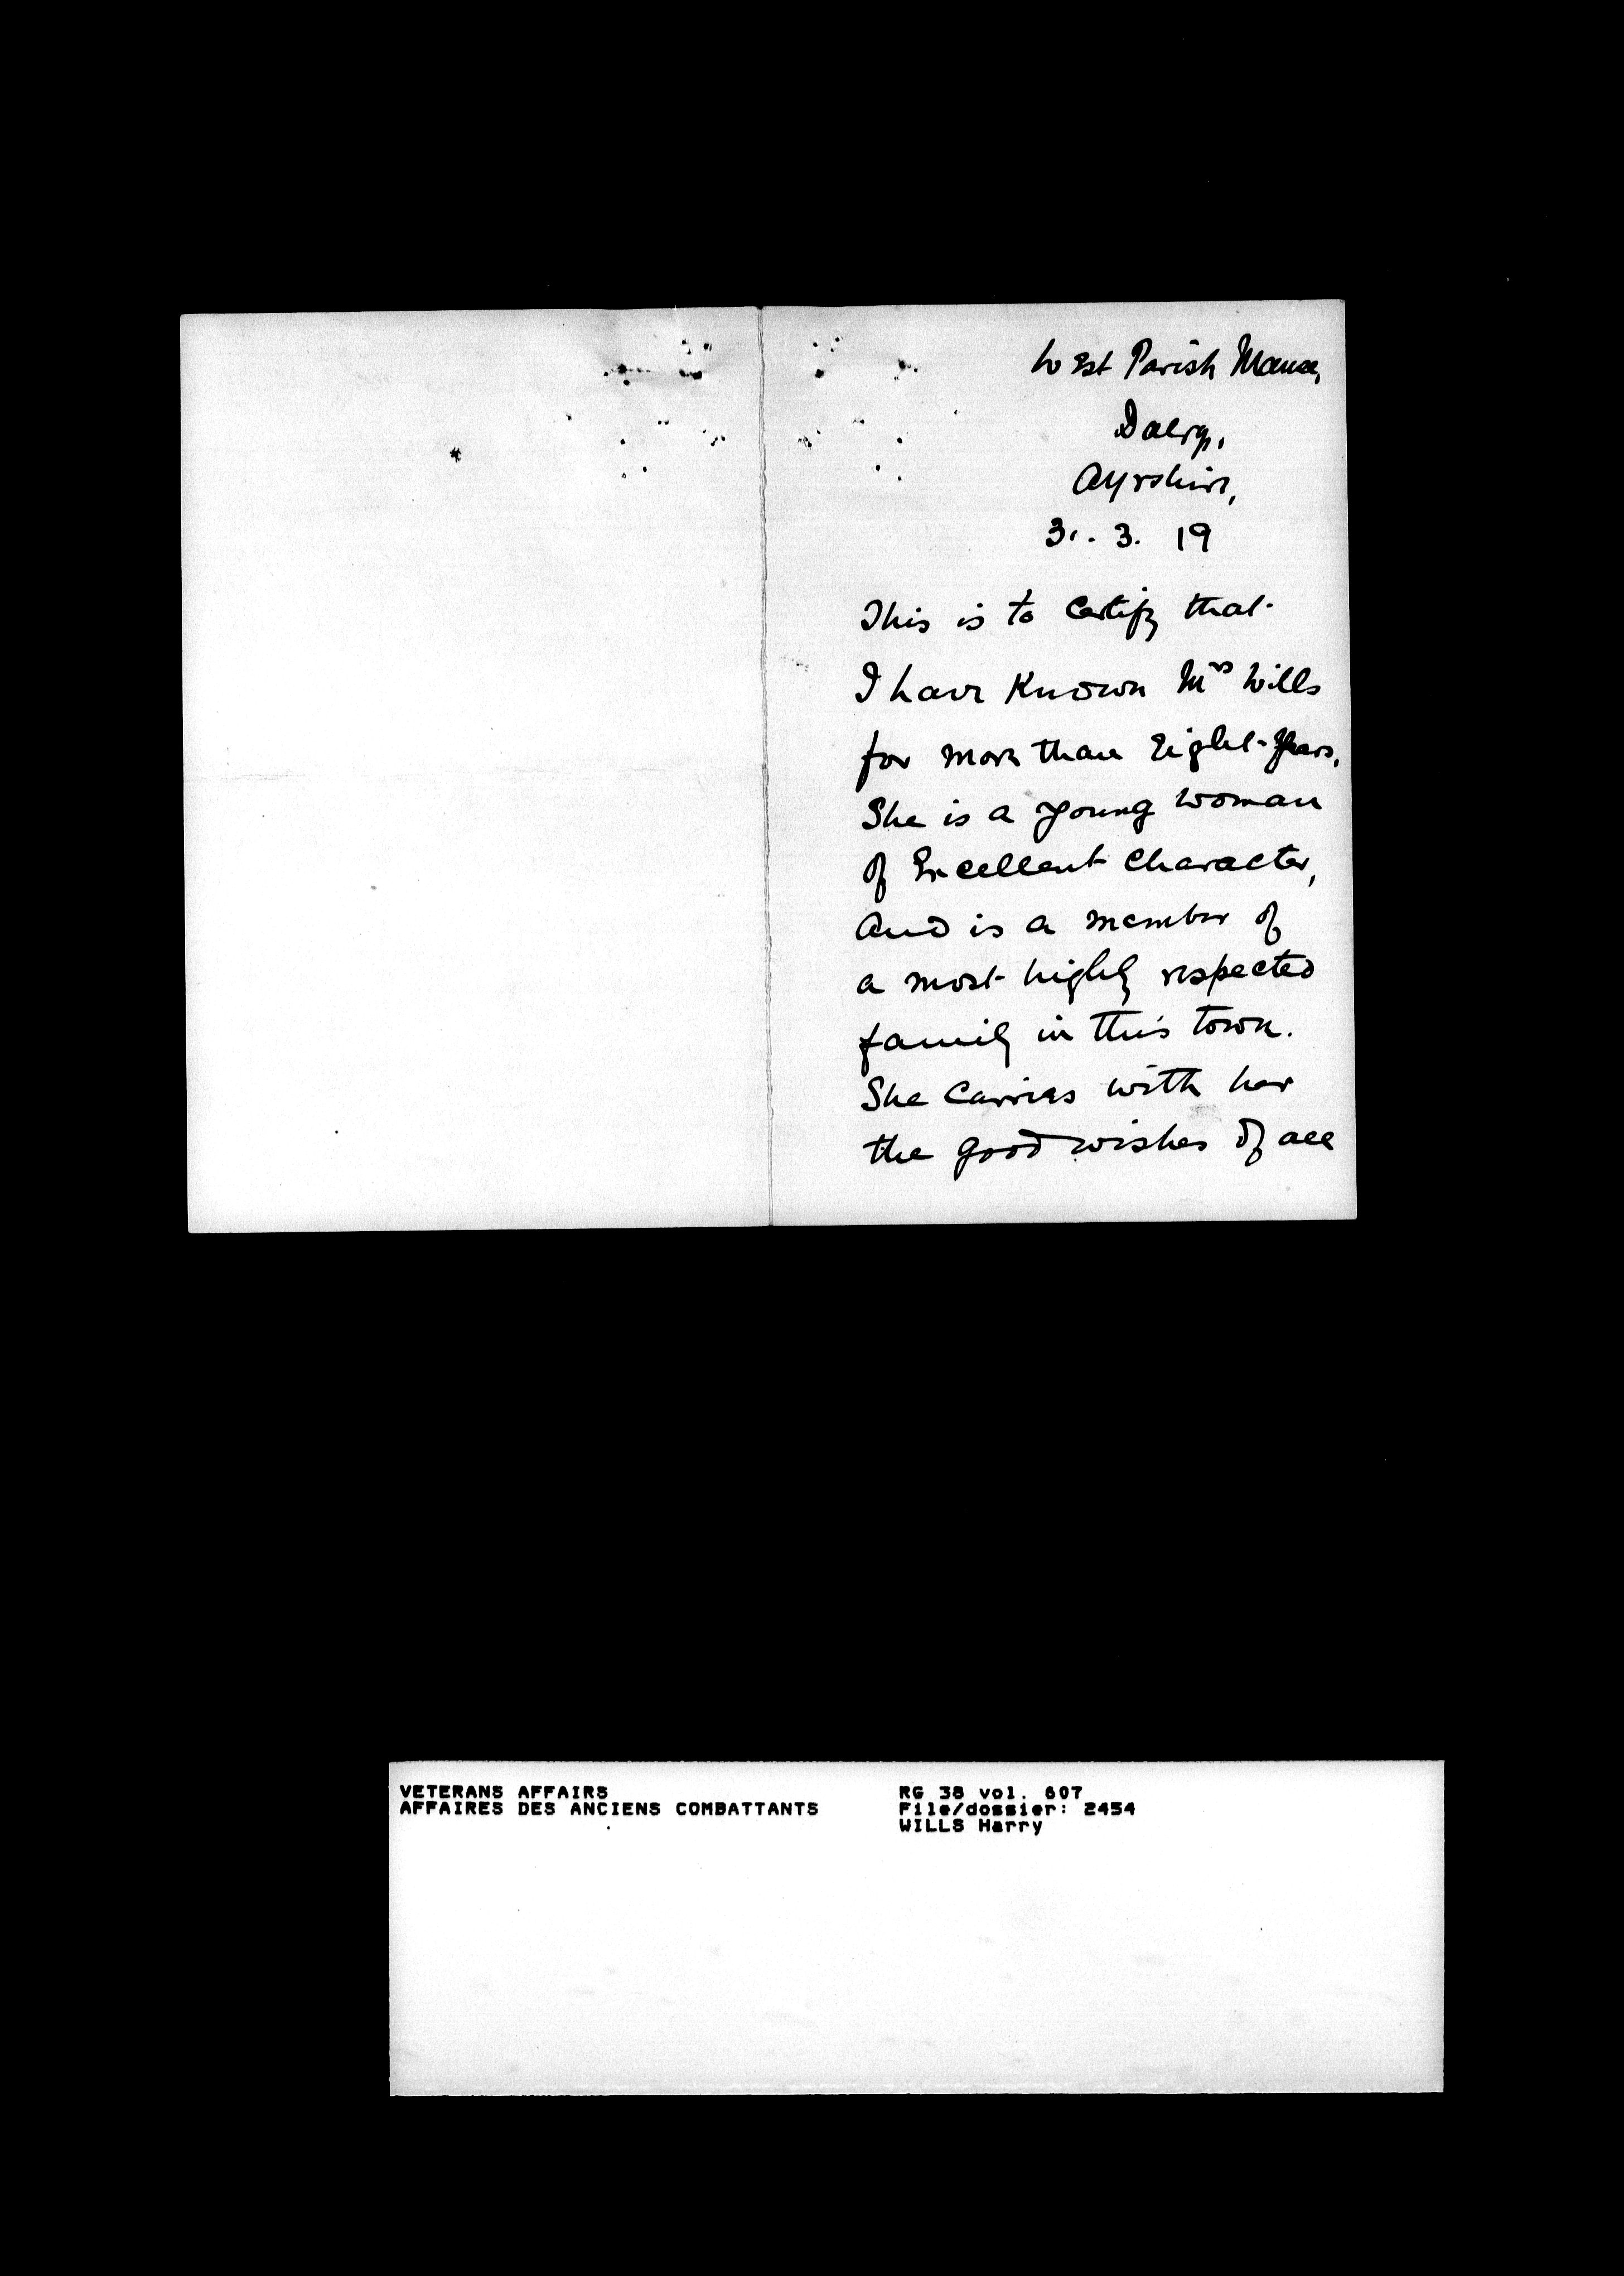 West Parish Manse,
Dalry,
Ayrshire,
31. 3. 19
This is to Certify that
I have Known Mrs Wills
for more than Eight Years.
She is a young woman
of Excellent Character,
and is a member of
a most highly respected
family in this town.
She Carries with her
the good wishes of all
VETERANS AFFAIRS
AFFAIRES DES ANCIENS COMBATTANTS
RG 38 vol. 607
File/dossier: 2454
WILLS Harry